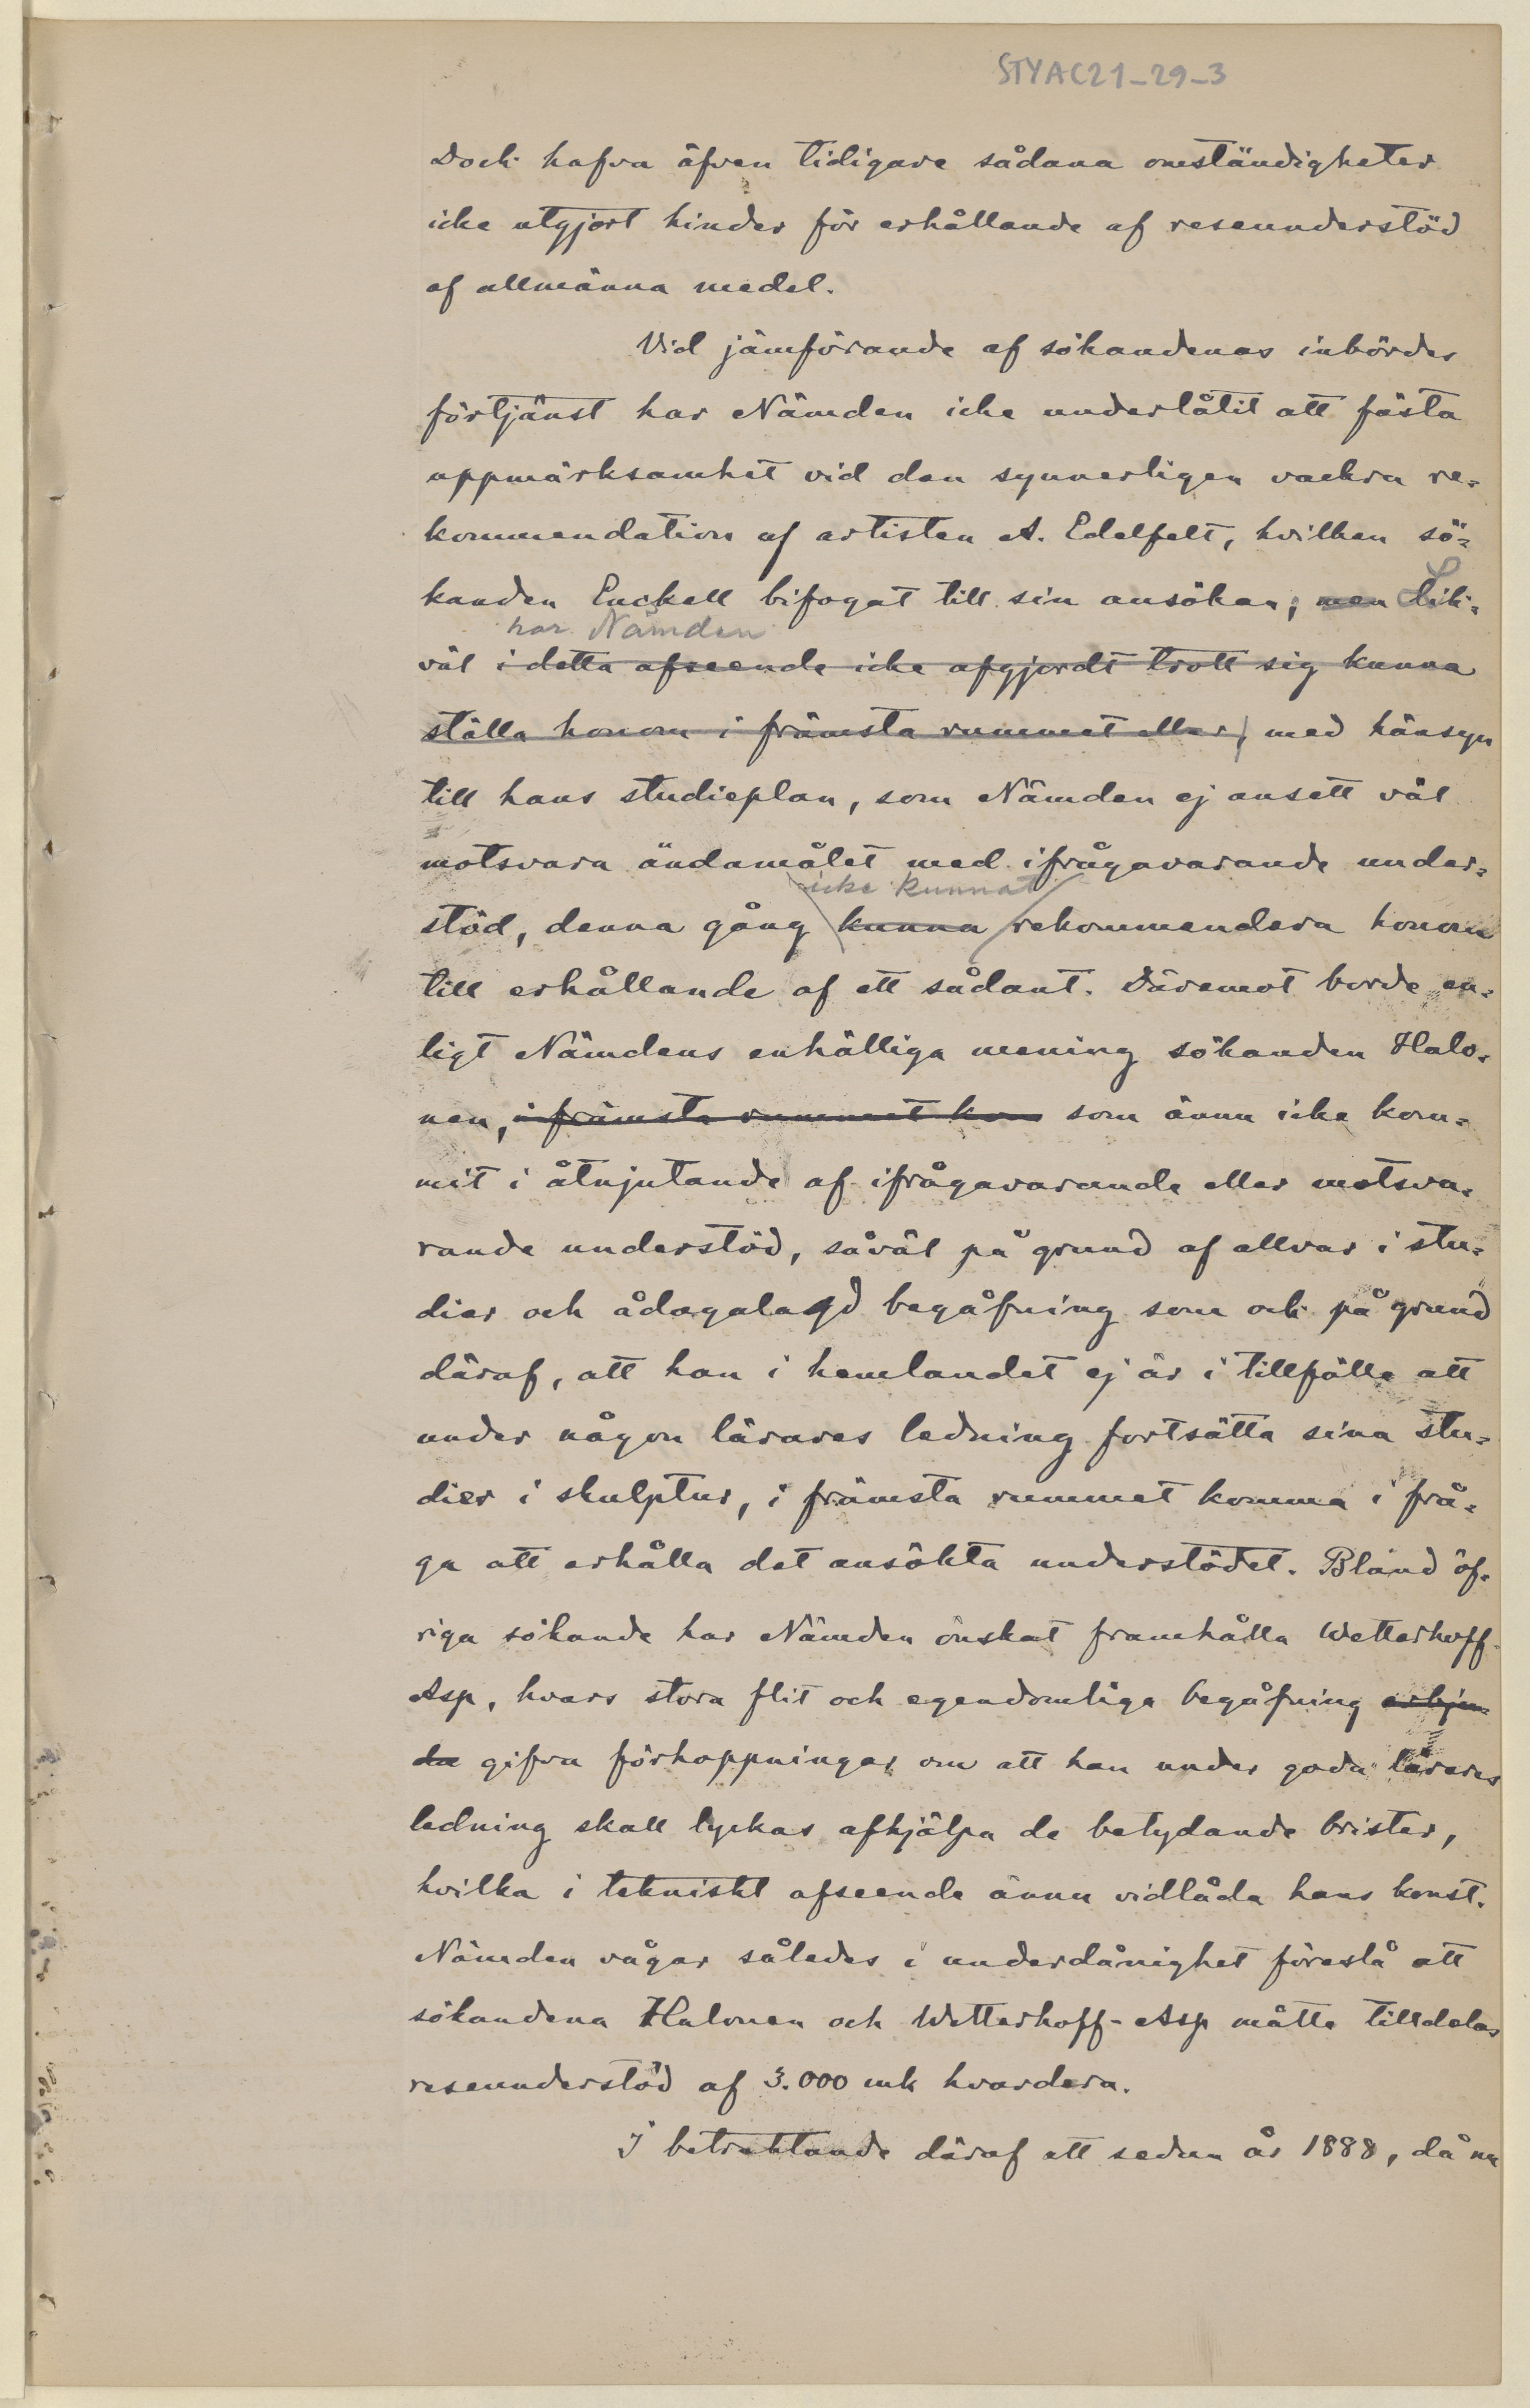 STYAC21-29-3
Dock hafva äfven tidigare sådana omständigheter
icke utgjort hinder för erhållande af reseunderstöd
af allmänna medel.
Vid jämförande af sökandenas inbördes
förtjänst har Nämden icke underlåtit att fästa
uppmärksamhet vid den synnerligen vackra re-
kommendation af artisten A. Edelfelt, hvilken sö-
kanden Enckell bifogat till sin ansökan; men Lik-
har Nämden
väl i detta afseende icke afgjordt trott sig kunna
ställa honom i främsta rummet eller, med hänsyn
till hans studieplan, som Nämden ej ansett väl
motsvara ändamålet med ifrågavarande under-
icke kunnat
stöd, denna gång kunna rekommendera honom
till erhållande af ett sådant. Däremot borde en-
ligt Nämdens enhälliga mening sökanden Halo-
nen, i främsta rummet kom som ännu icke kom-
mit i åtnjutande af ifrågavarande eller motsva-
rande understöd, såväl på grund af allvar i stu-
dier och ådagalagd begåfning som ock på grund
däraf, att han i hemlandet ej är i tillfälle att
under någon lärares ledning fortsätta sina stu-
dier i skulptur, i främsta rummet komma i frå-
ga att erhålla det ansökta understödet. Bland öf-
riga sökande har Nämden önskat framhålla Wetterhoff-
Asp, hvars stora flit och egendomliga begåfning erbju-
da gifva förhoppningar om att han under goda lärares
ledning skall lyckas afhjälpa de betydande brister,
hvilka i tekniskt afseende ännu vidlåda hans konst.
Nämden vågar således i underdånighet föreslå att
sökandena Halonen och Wetterhoff-Asp måtte tilldelas
reseunderstöd af 3.000 mk hvardera.
I betraktande däraf att sedan år 1888, då nu